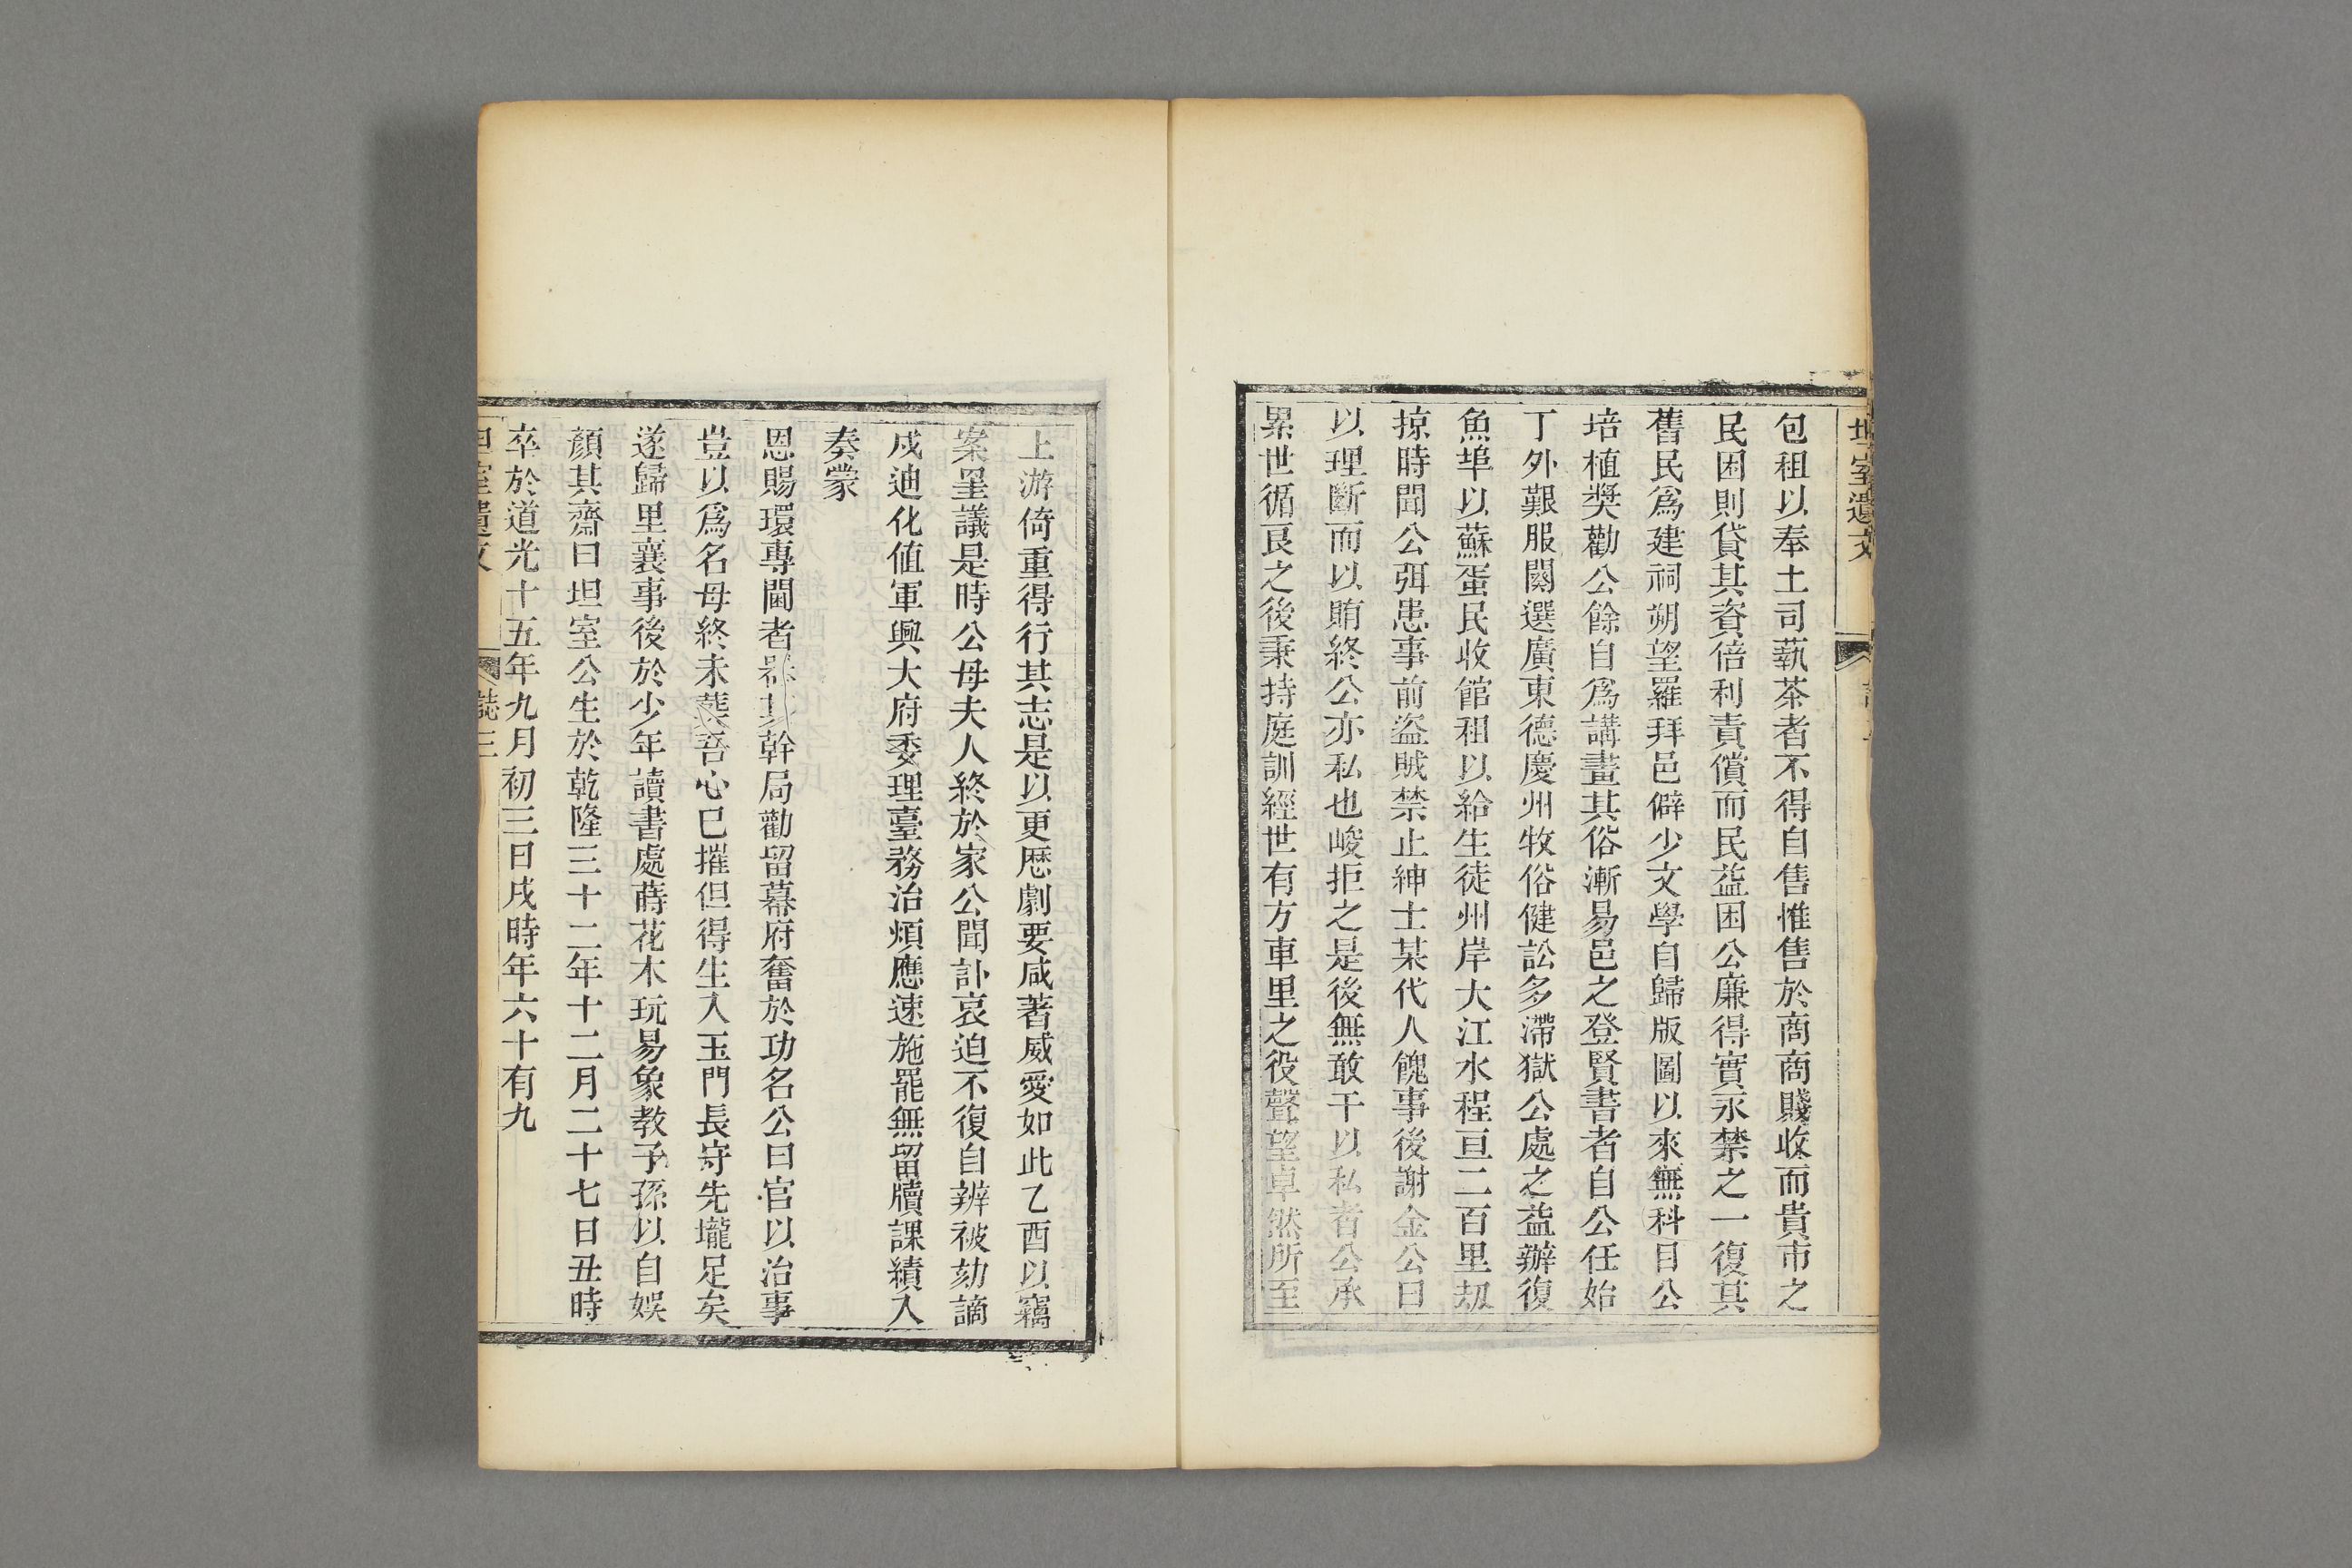 坦室遺文
包租以奉土司蓺茶者不得自售惟售於商商賤收而貴市之
民困則貸其資倍利責償而民益困公廉得實永禁之一復其
舊民爲建祠朔望羅拜邑僻少文學自歸版圖以來無科目公
培植奬勸公餘自爲講畫其俗漸易邑之登賢書者自公任始
丁外艱服闋選廣東德慶州牧俗健訟多滯獄公處之益辦復
魚埠以蘇蛋民收館租以給生徒州岸大江水程亘二百里刼
掠時聞公弭患事前盜賊禁止紳士某代人餽事後謝金公曰
以理斷而以賄終公亦私也峻拒之是後無敢干以私者公承
累世循良之後秉持庭訓經世有方車里之役聲望卓然所至
上游倚重得行其志是以更歷劇要咸著威愛如此乙酉以竊
案罣議是時公母夫人終於家公聞訃哀迫不復自辨被劾謫
戍迪化值軍興大府委理臺務治煩應速施罷無留牘課績入
奏蒙
恩賜環專閫者器其幹局勸留幕府奮於功名公曰官以治事
豈以爲名母終未葬吾心已摧但得生入玉門長守先壠足矣
遂歸里襄事後於少年讀書處蒔花木玩易象教子孫以自娛
顏其齋曰坦室公生於乾隆三十二年十二月二十七日丑時
卒於道光十五年九月初三日戌時年六十有九
坦室遺文 誌三